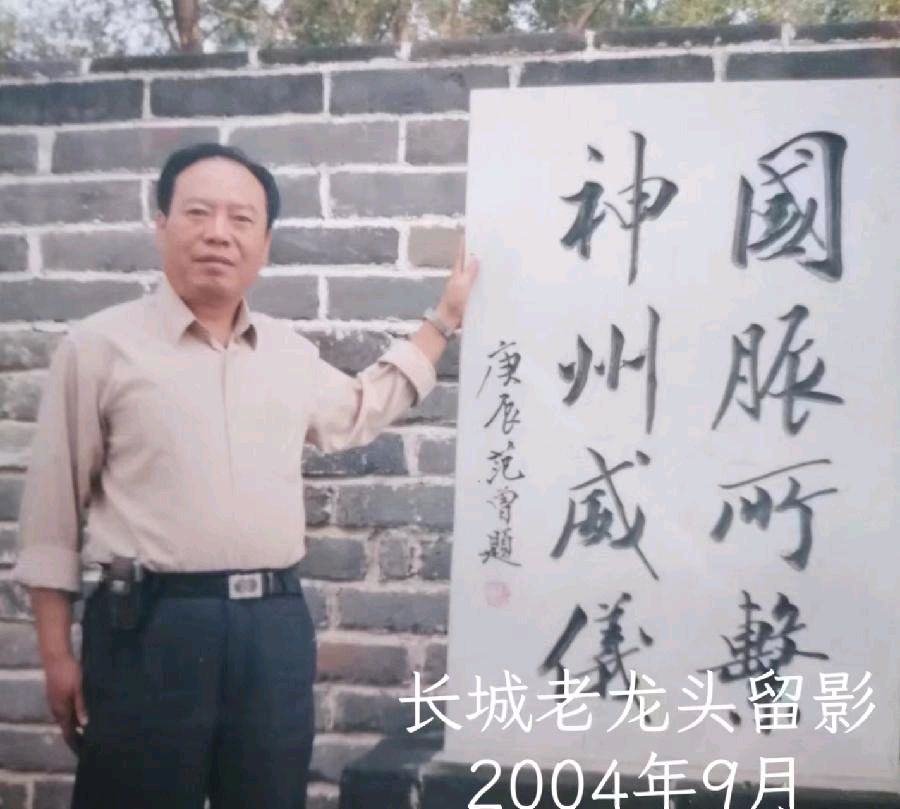 國脈所繫
神州威儀
庚辰范曾題
长城老龙头留影
2004年9月